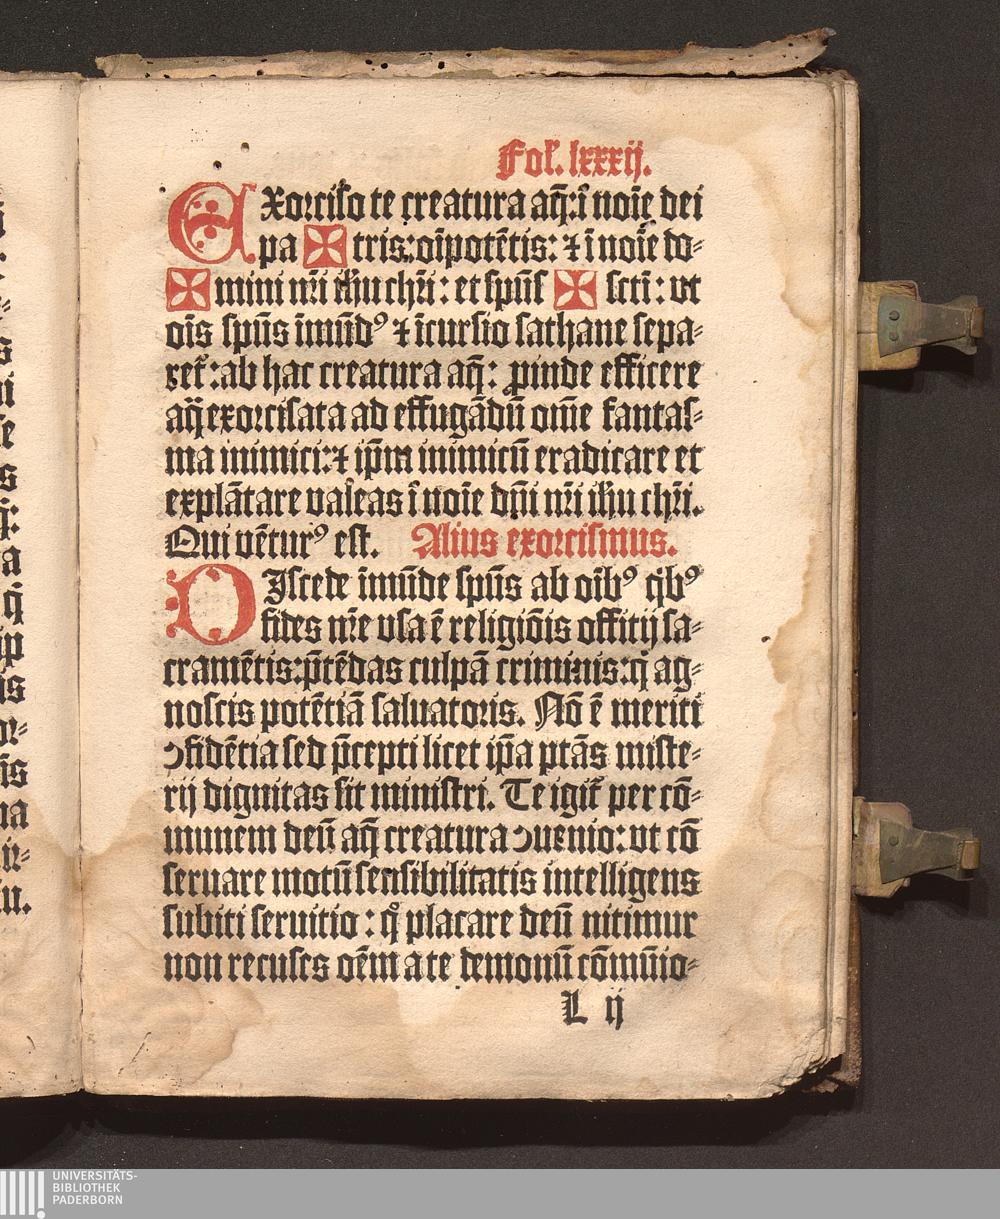 Fol'. lxxxij.
EXorciso te creatura aq̄: ī noīe dei
pa ✠ tris: oīpotētis: ⁊ ī noīe do⸗
✠ mini nr̄i ihū chr̄i: et spūs ✠ scti: vt
oīs spūs īmūdꝰ ⁊ īcursio sathane sepa⸗
ret᷑: ab hac creatura aq̄: ꝓinde efficere
aq̄ exorcisata ad effugādū om̄e fantas⸗
ma inimici: ⁊ ip̄m inimicū eradicare et
explātare valeas ī noīe dn̄i nr̄i ihū chr̄i.
Qui vēturꝰ est. Alius exorcismus.
DIscede īmūde spūs ab oībꝰ qͥbꝰ
fides nr̄e vsa ē religiōis offitij sa⸗
cramētis: p̄tēdas culpā criminis: qͥ ag⸗
noscis potētiā saluatoris. Nō ē meriti
ꝯfidētia sed p̄cepti licet ip̄a ptās miste⸗
rij dignitas sit ministri. Te igit᷑ per cō⸗
munem deū aq̄ creatura ꝯuenio: vt cō
seruare motū sensibilitatis intelligens
subiti seruitio: qͦ placare deū nitimur
non recuses oēm a te demonū cōmūio⸗
L ij
ip
is
or⸗
na
UNIVERSITÄTS-
BIBLIOTHEK
PADERBORN